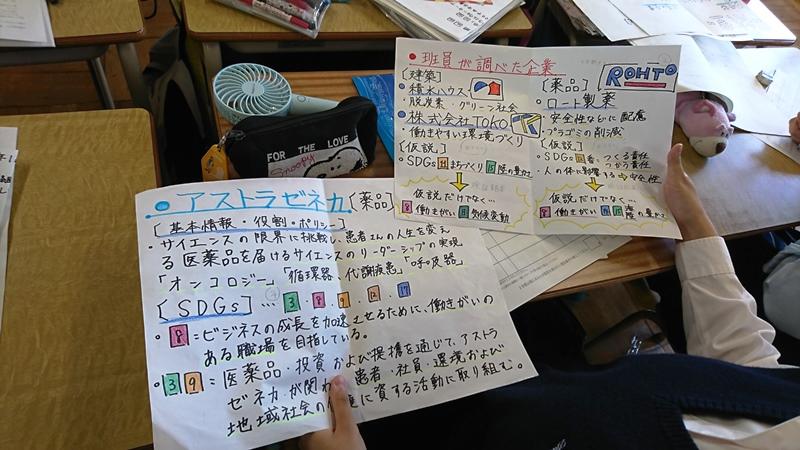 ●班員が調べた企業
[建築]
●積水ハウス
・脱炭素・グリーン社会
●株式会社TOKO
働きやすい環境づくり
[仮説]
・SDGs 11 まちづくり 15 陸の豊かさ
仮説だけでなく…
8 働きがい
気候変動
[薬品]
ROHTO
・ロート製薬
・安全性などに配慮
・プラゴミの削減
[仮説]
・SDGs 12番、つくる責任
つかう責任
・人の体に影響する⇒安全性
仮説だけでなく…
8 働きがい
陸の豊かさ
●アストラゼネカ[薬品]
[基本情報・役割・ポリシー]
・サイエンスの限界に挑戦し、患者さんの人生を変え
る医薬品を届けるサイエンスのリーダーシップの実現
「オンコロジー」「循環器・代謝疾患」「呼吸器」
[SDGs]… 3 . 8 . 9 . 12 . 17
・8 = ビジネスの成長を加速させるために、働きがいの
ある職場を目指している。
・3 9 = 医薬品・投資および提携を通じて、アストラ
ゼネカが関わる患者・社員・環境および
地域社会の健康に資する活動に取り組む。
FOR THE LOVE
Snoopy